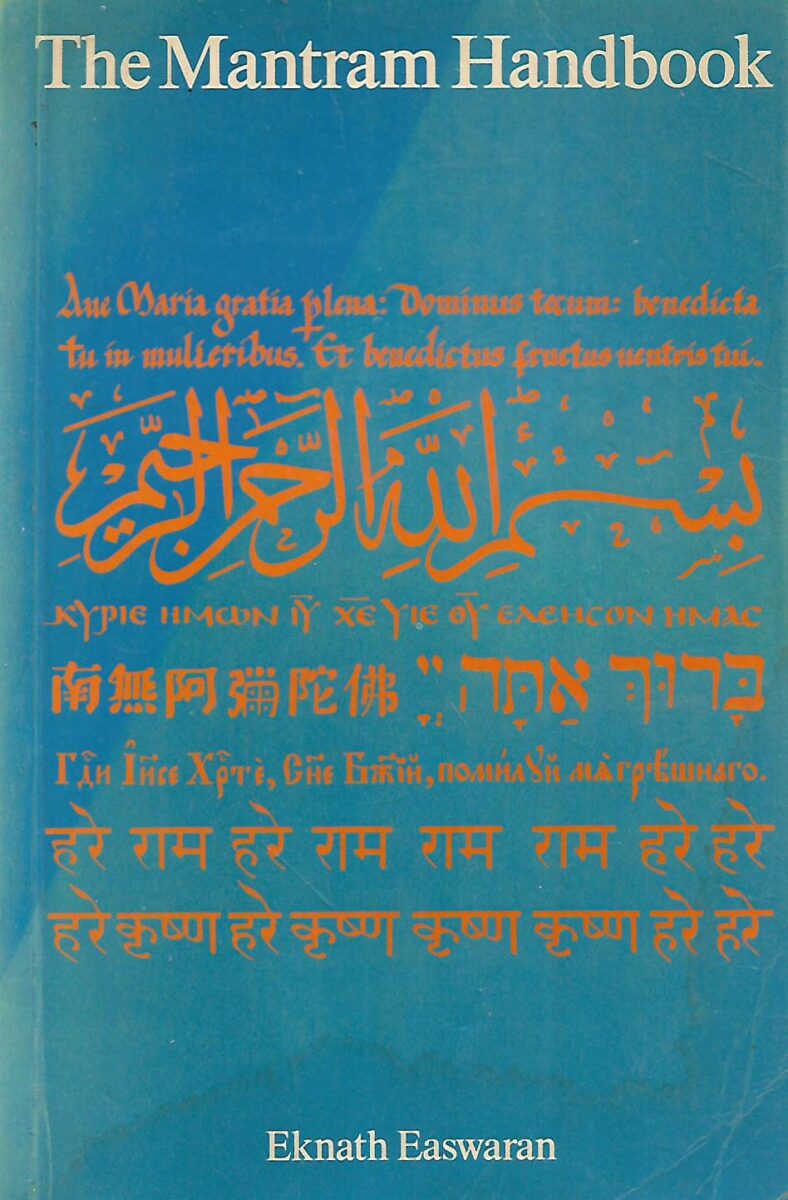 The Mantram Handbook
Aue Maria gratia plena: Dominus tecum: benedicta
tu in mulieribus. Et benedictus fructus uentris tui.
بِسْمِ اللَّهِ الرَّحْمَٰنِ الرَّحِيمِ
ΚΥΡΙЄ ΗΜωΝ ΙΥ̅ ΧЄ̅ ΥΙЄ ΘΥ̅ ЄΛЄΗϹΟΝ ΗΜΑϹ
南無阿彌陀佛 בָּרוּךְ אַתָּה יְיָ
Гдⷭ҇и І҆и҃се Хрⷭ҇тѐ, Сн҃е Бж҃їй, поми́лꙋй мѧ̀ грѣ́шнаго.
हरे राम हरे राम राम राम हरे हरे
हरे कृष्ण हरे कृष्ण कृष्ण कृष्ण हरे हरे
Eknath Easwaran